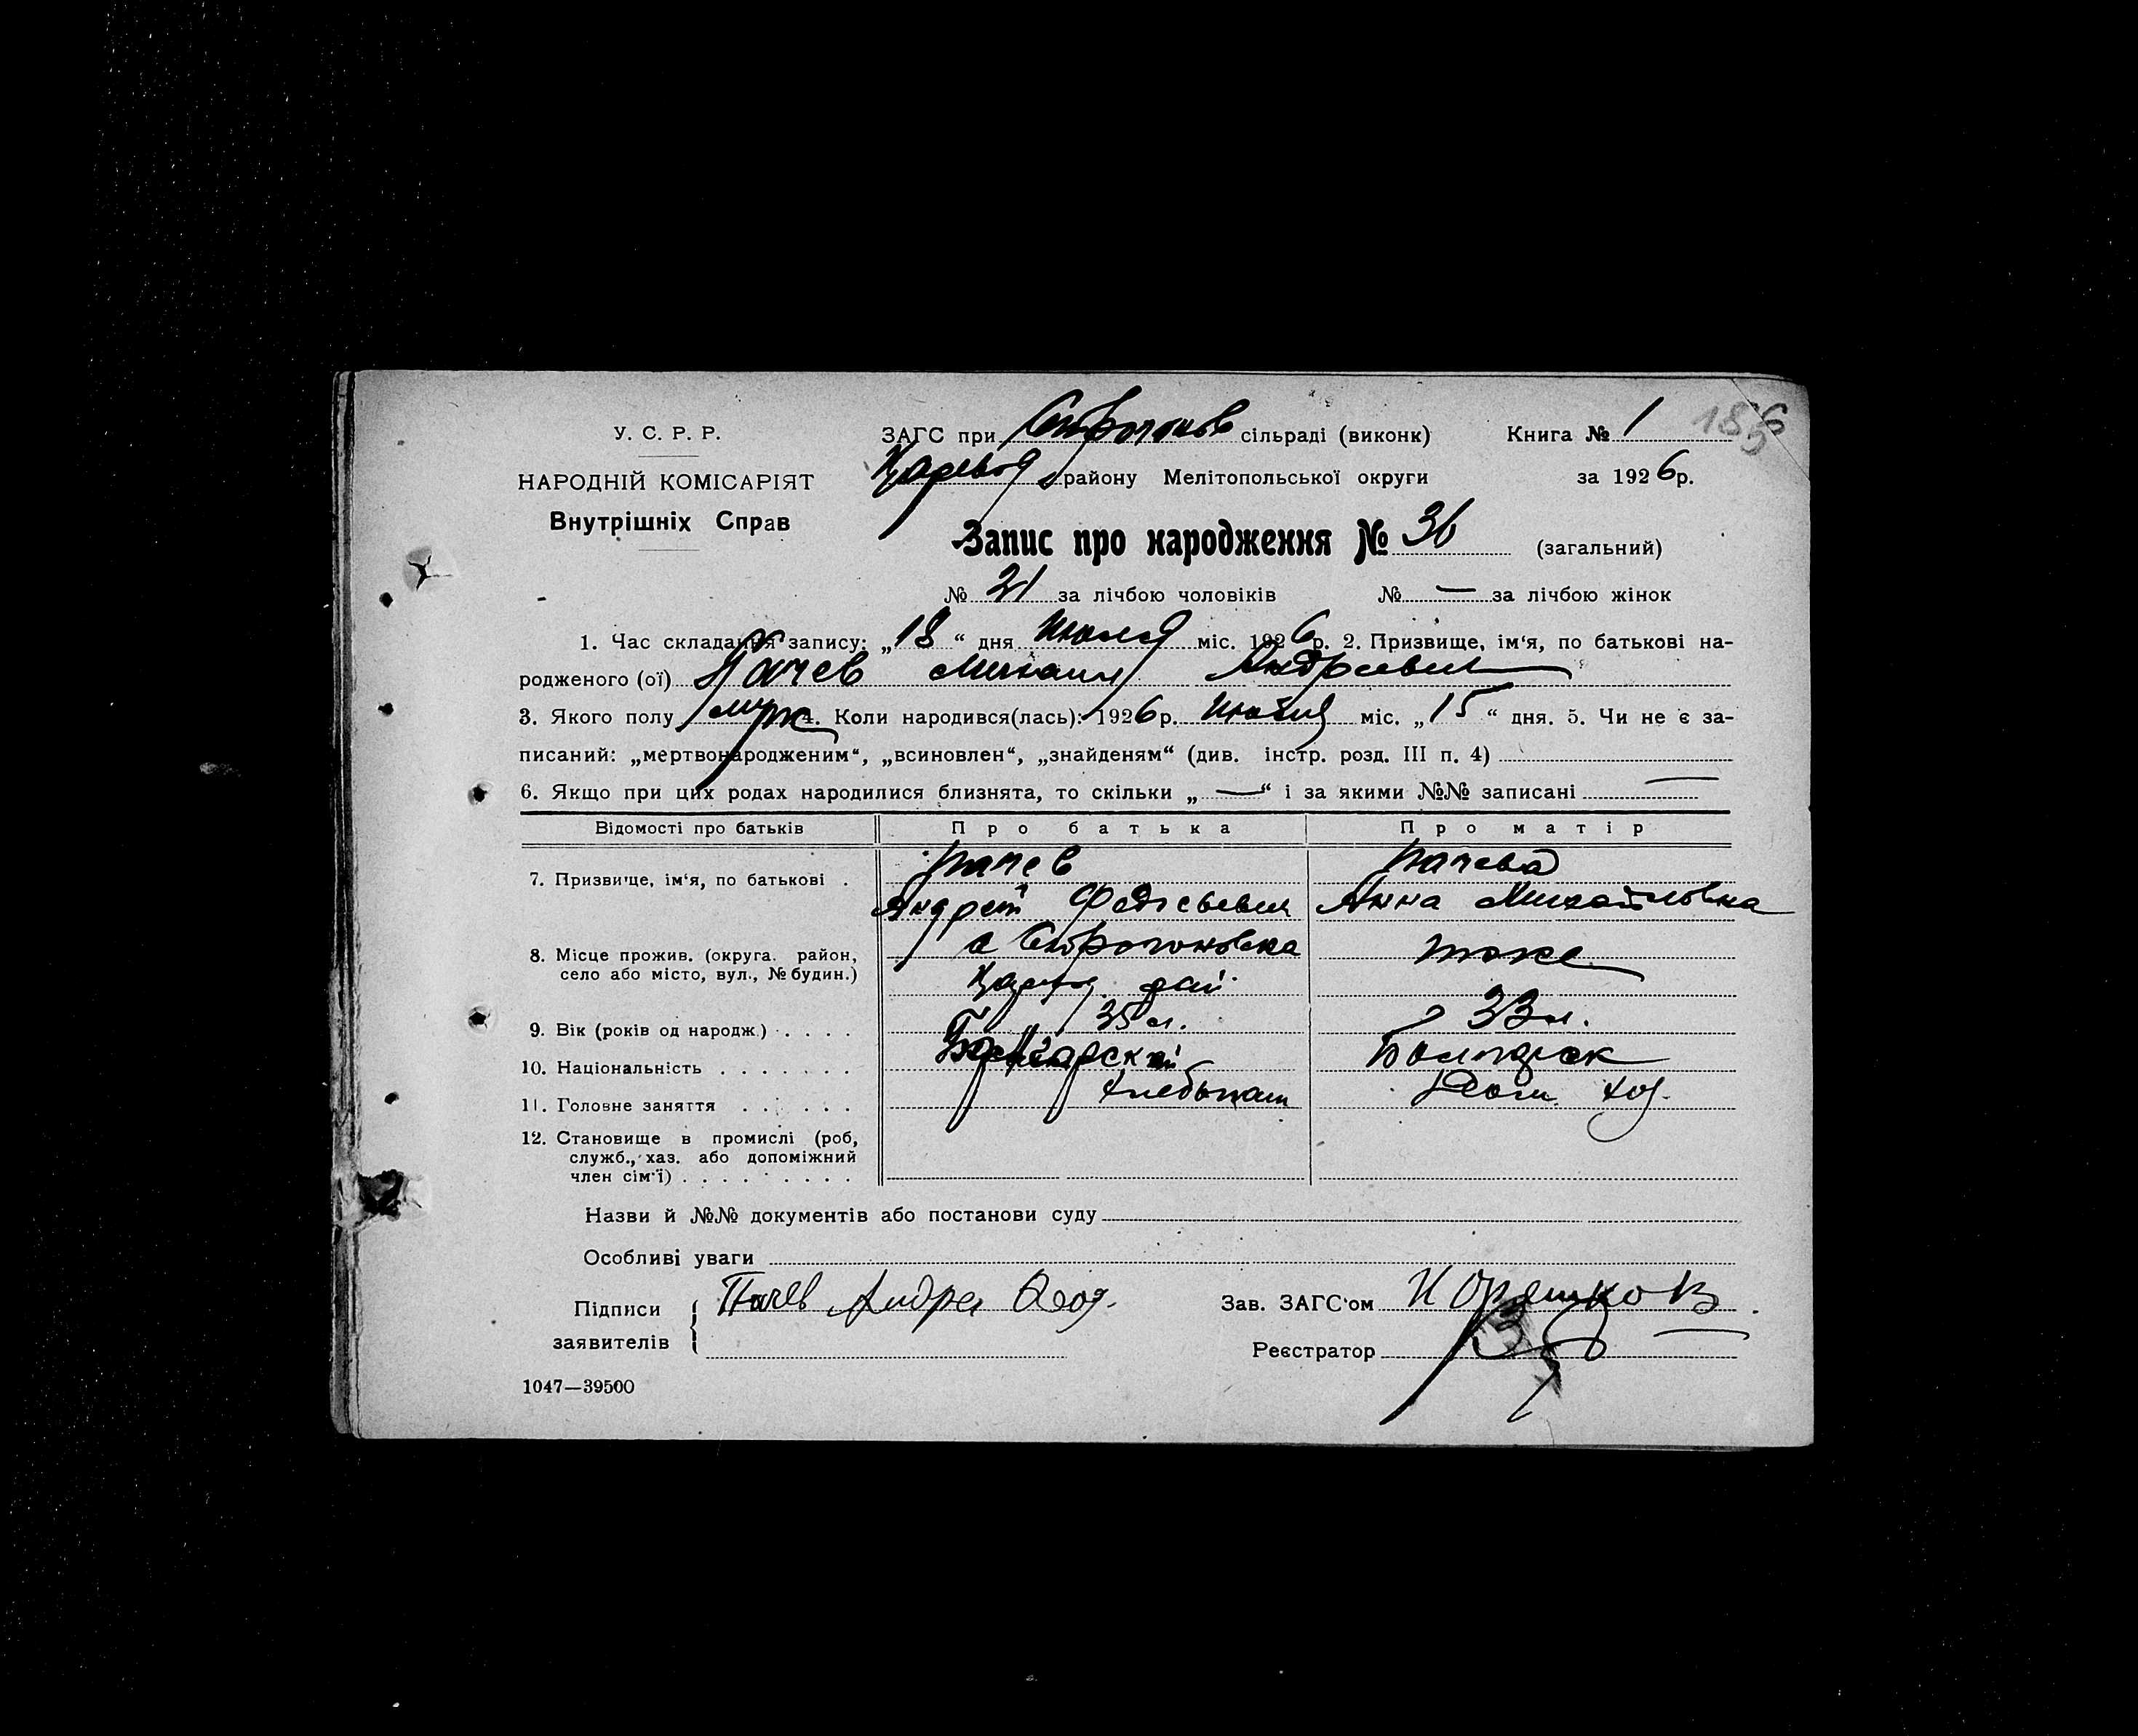 У. С. Р. Р.
НАРОДНІЙ КОМІСАРІЯТ
Внутрішніх Справ
ЗАГС при Строгонов сільраді (виконк) Книга № 1
Царевод району Мелітопольської округи за 1926р.
Запис про народження № 36 (загальний)
№ 21 за лічбою чоловіків № — за лічбою жінок
1. Час складання запису: „18“ дня Июля міс. 1926р. 2. Призвище, ім‘я, по батькові на-
родженого (ої) Пачев Михаил Андреевич
3. Якого полу муж 4. Коли народився(лась): 1926р. Июля міс. „15“ дня. 5. Чи не є за-
писаний: „мертвонародженим“, „всиновлен“, „знайденям“ (див. інстр. розд. III п. 4)
6. Якщо при цих родах народилися близнята, то скільки „—“ і за якими №№ записані —
Відомості про батьків Про батька Про матір
7. Призвище, ім‘я, по батькові . Пачев Пачева
Андрей Анна Михайловна
8. Місце прожив. (округа, район, с Строгоновка тоже
село або місто, вул., № будин.) Царевод рай
9. Вік (років од народж.) . . . . 35 л. 33 л.
10. Національність . . . . . . . Болгарск
11. Головне заняття . . . . . . Хлебопаш Дом. хоз.
12. Становище в промислі (роб,
служб., хаз. або допоміжний
член сім‘ї) . . . . . . . . .
Назви й №№ документів або постанови суду
Особливі уваги
Підписи Пачев Андрей Феод. Зав. ЗАГС‘ом
заявителів Реєстратор
1047—39500